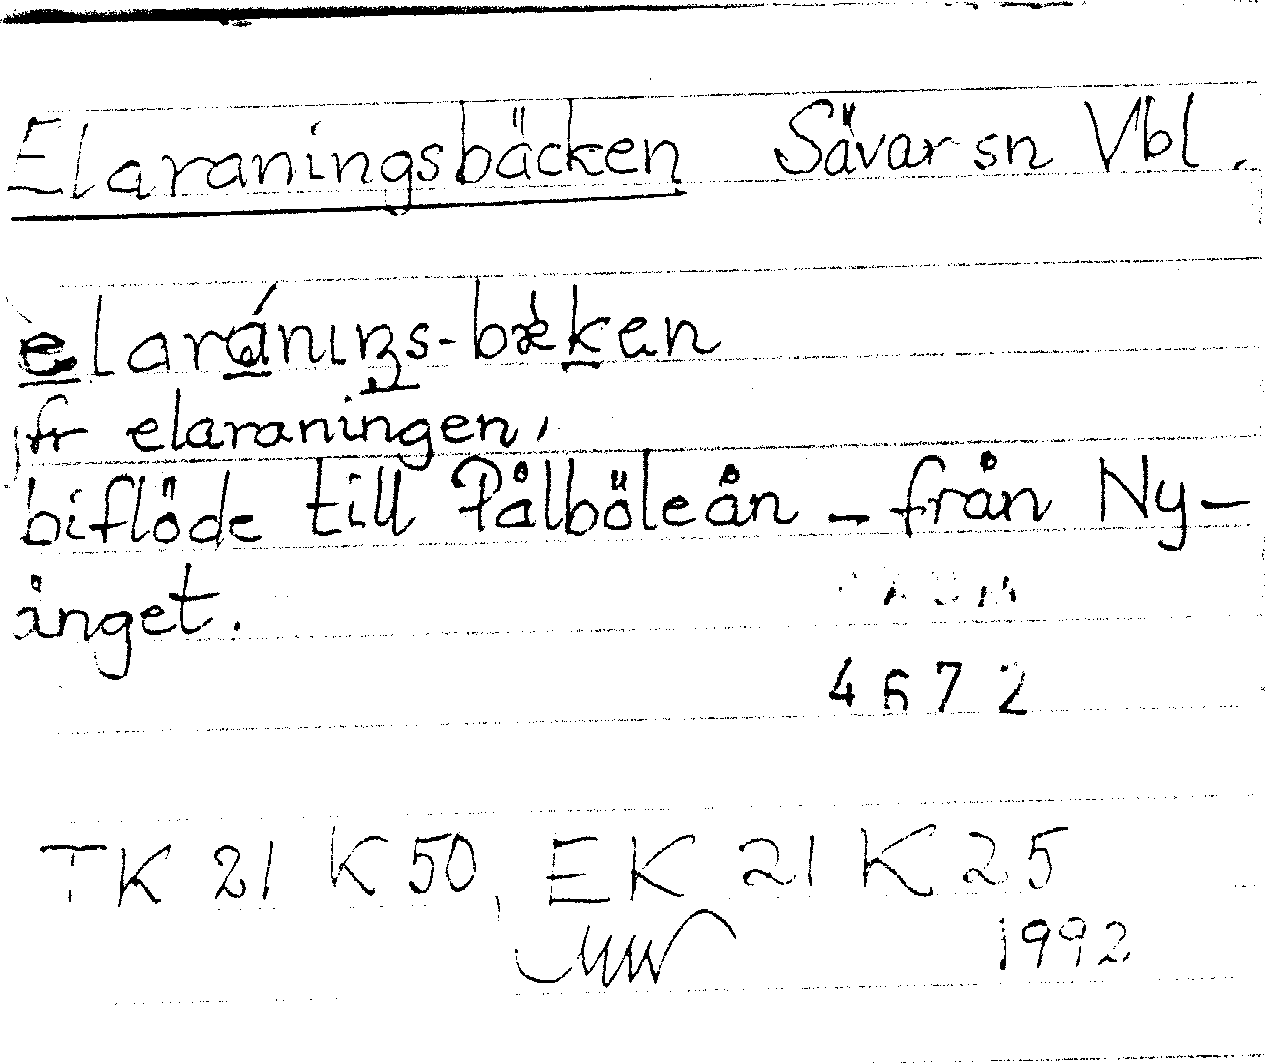 Elaraningsbäcken Sävar sn Vbl.
elaránıŋs-bæken
fr elaraningen,
biflöde till Pålböleån – från Ny-
ånget.
4672
TK 21 K 50, EK 21 K 25
1992